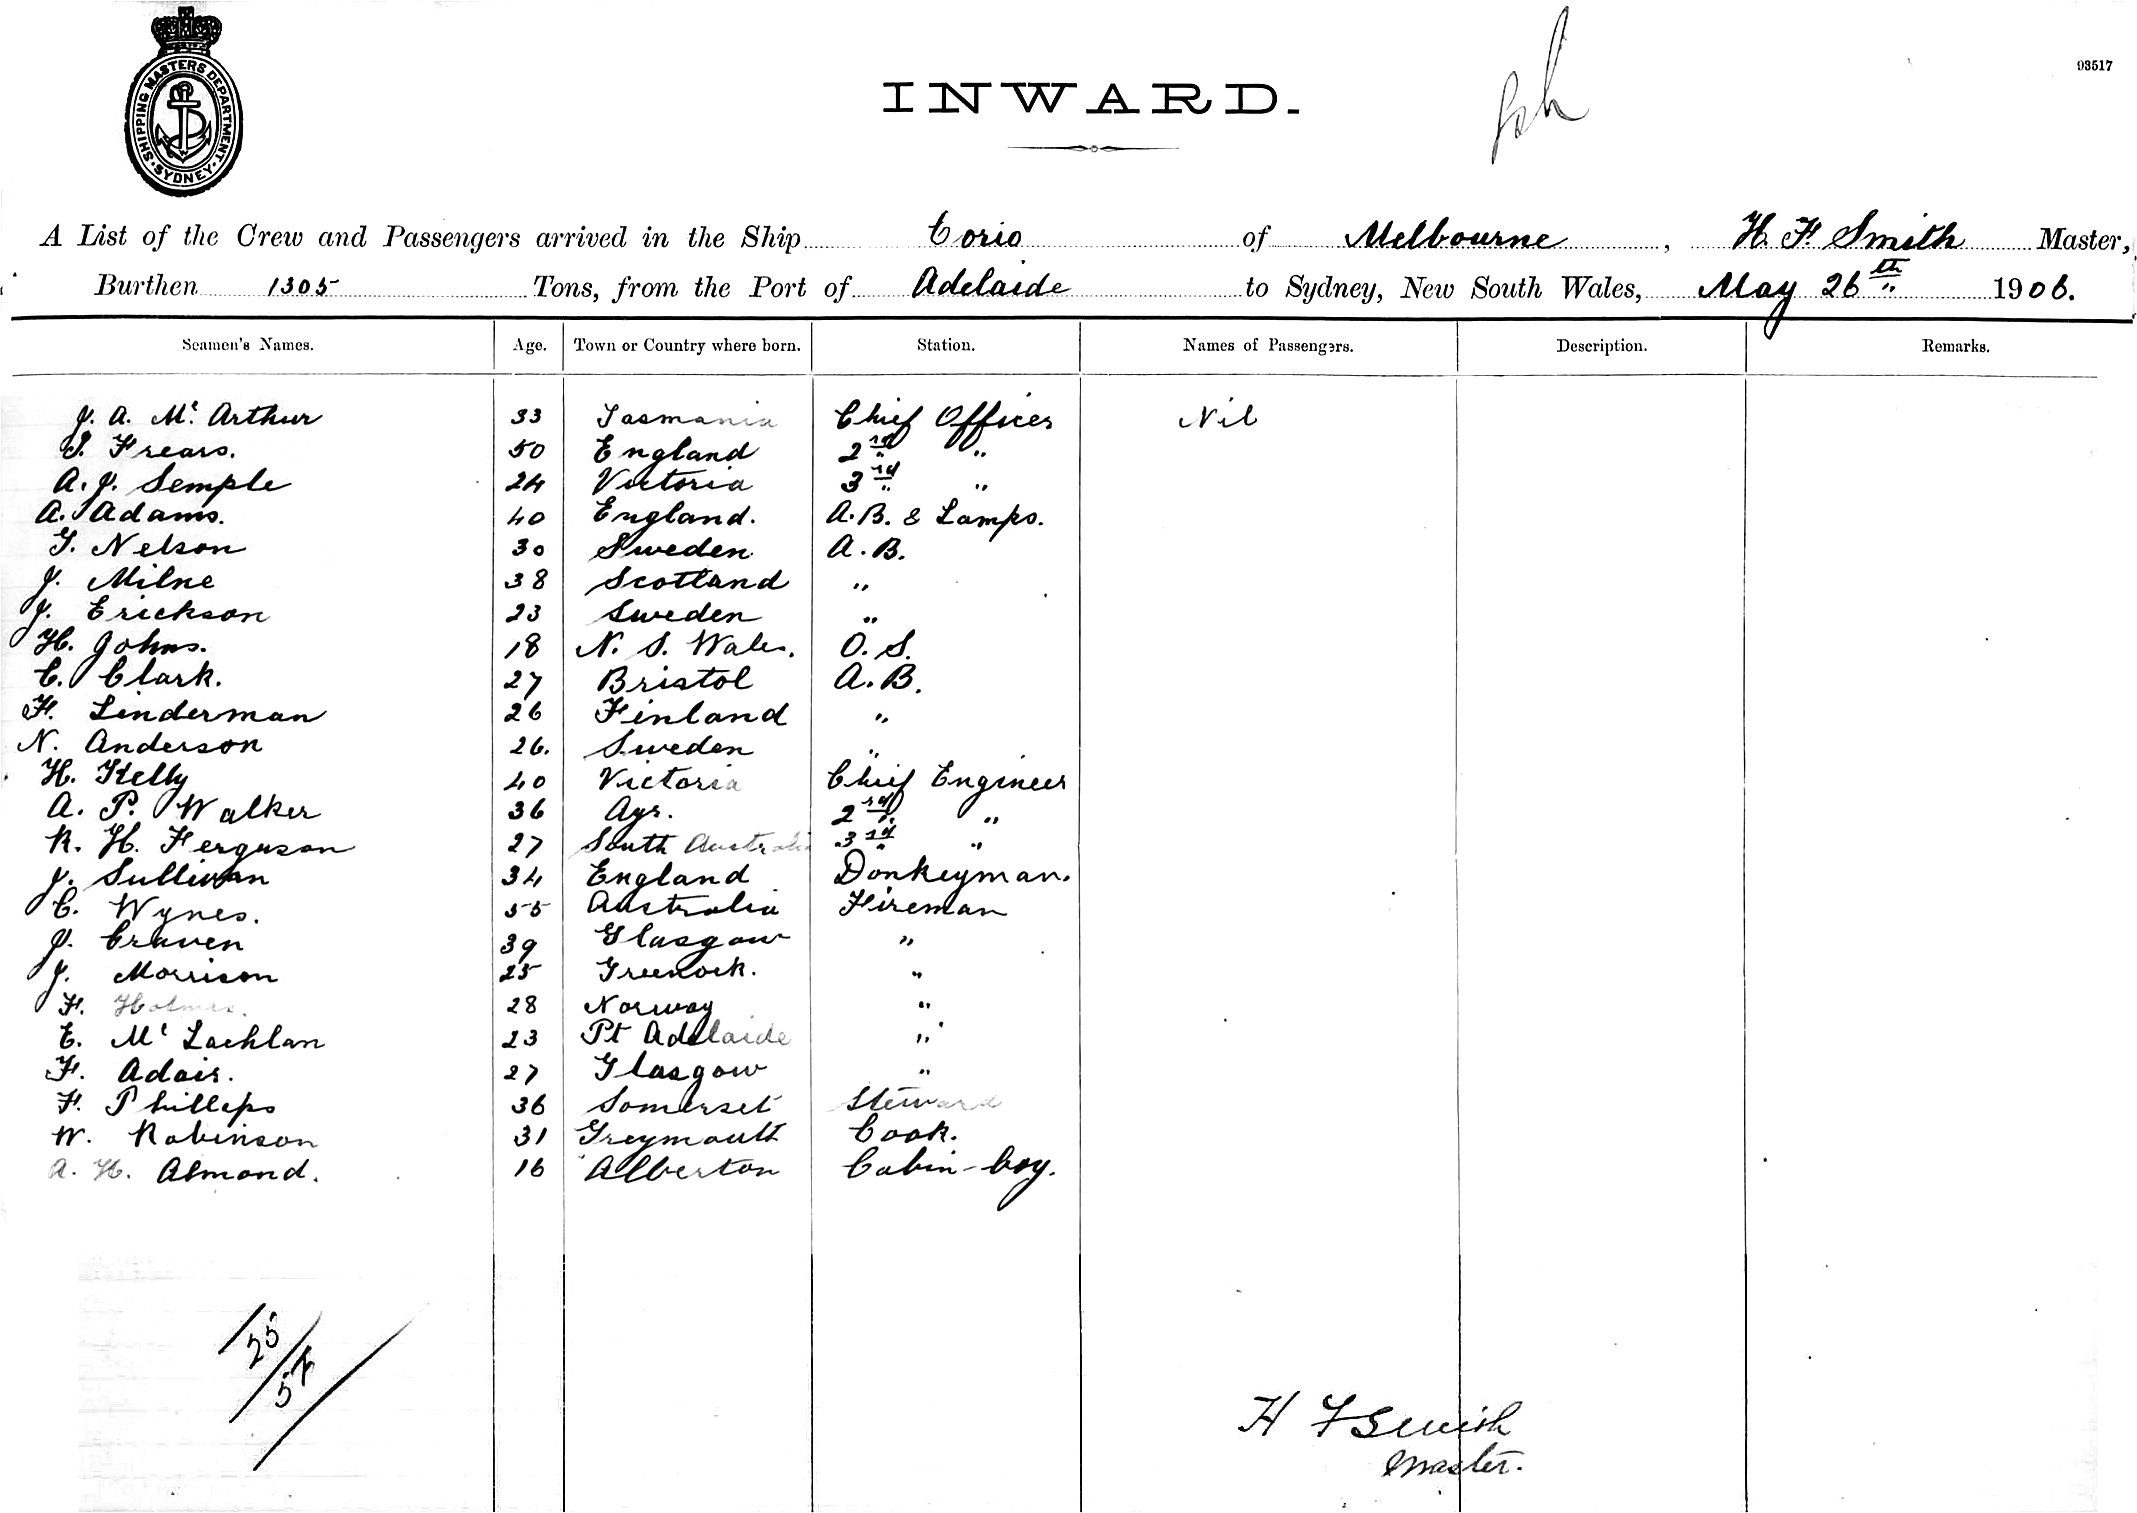 SHIPPING MASTERS DEPARTMENT. SYDNEY.
03517
INWARD.
A List of the Crew and Passengers arrived in the Ship Corio of Melbourne, H. F. Smith Master,
Burthen 1305 Tons, from the Port of Adelaide to Sydney, New South Wales, May 26th 1906.
Seamen's Names. Age. Town or Country where born. Station. Names of Passengers. Description. Remarks.
J. A. Mc Arthur 33 Tasmania Chief Officer Nil
Frears. 50 England 2nd "
A. J. Semple 24 Victoria 3rd "
A. Adams. 40 England. A.B. & Lamps.
G. Nelson 30 Sweden A.B.
J. Milne 38 Scotland "
J. Erickson 23 Sweden "
H. Johns. 18 N. S. Wales. O.S.
C. Clark. 27 Bristol A.B.
F. Linderman 26 Finland "
N. Anderson 26. Sweden "
H. Kelly 40 Victoria Chief Engineer
A. P. Walker 36 Ayr. 2nd "
R. H. Ferguson 27 South Australia 3rd "
J. Sullivan 34 England Donkeyman.
C. Wynes. 55 Australia Fireman
J. Craven 39 Glasgow "
J. Morrison 25 Greenock. "
F. Holmes. 28 Norway "
E. Mc Lachlan 23 Pt Adelaide "
F. Adair. 27 Glasgow "
F. Phillips 36 Somerset Steward
W. Robinson 31 Greymouth Cook.
A. H. Almond. 16 Alberton Cabin-boy.
25
H F Smith
Master.